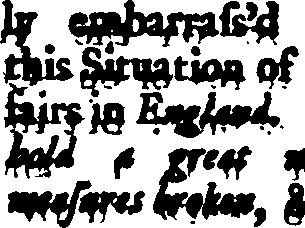 ly embarraſs'd
this Situation of
fairs in England.
hold a great
meaſures broken, &